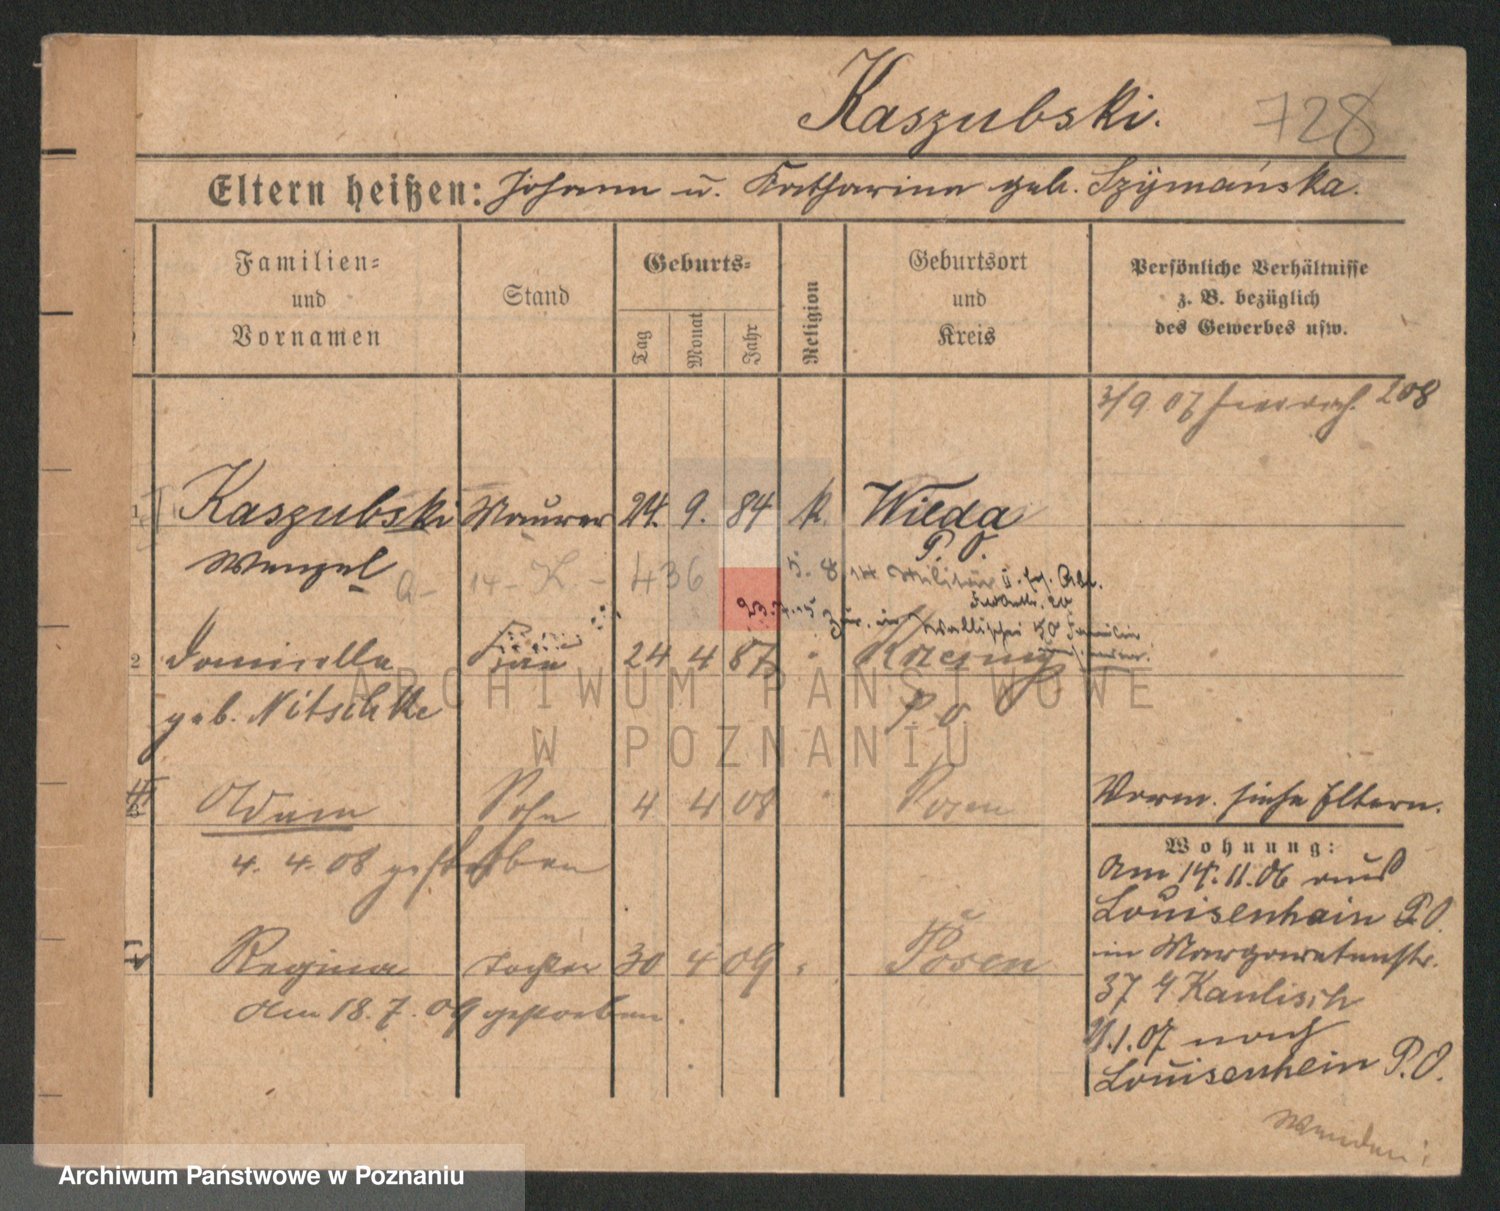 Kaszubski. 728
Eltern heißen: Johann u. Katharina geb. Szymańska.
Familien-
und
Vornamen
Stand
Geburts-
Tag
Monat
Jahr
Religion
Geburtsort
und
Kreis
Persönliche Verhältnisse
z. B. bezüglich
des Gewerbes usw.
3/9 07 208
1 Kaszubski Maurer 24. 9. 84 k. Wilda
Wenzel P. O.
A- 14- K.- 436 5. 8. 14 Militär
23.
2 Frau 24 4 87
geb. Nitschke P. O
3 Adam Sohn 4 4 08 Posen
4. 4. 08 gestorben
Regina Tochter 30 4 09 Posen
Am 18. 7. 09 gestorben.
Vorm. siehe Eltern.
Wohnung:
Am 14. 11. 06 aus
Louisenhain P.O.
in Margaretenstr.
37 Kaulisch
1. 07 nach
Louisenhein P. O.
Wenden!
ARCHIWUM PAŃSTWOWE
W POZNANIU
Archiwum Państwowe w Poznaniu